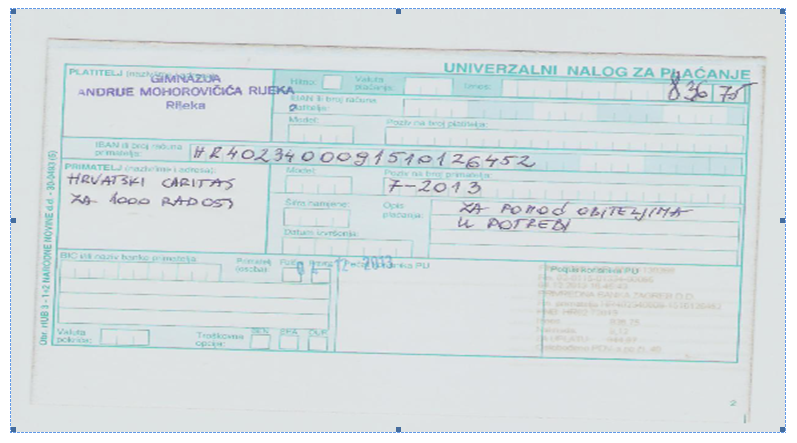 UNIVERZALNI NALOG ZA PLAĆANJE
PLATITELJ
GIMNAZIJA
ANDRIJE MOHOROVIČIĆA RIJEKA
Rijeka
Hitno: Valuta plaćanja: Iznos: 836 75
IBAN ili broj računa platitelja:
Model: Poziv na broj platitelja:
IBAN ili broj računa primatelja: HR4023400091510126452
PRIMATELJ (naziv/ime i adresa):
HRVATSKI CARITAS
ZA 1000 RADOSTI
Model: Poziv na broj primatelja:
7-2013
Šifra namjene: Opis plaćanja:
ZA POMOĆ OBITELJIMA
U POTREBI
Datum izvršenja:
BIC i/ili naziv banke primatelja:
Primatelj (osoba):
-12-2013
Potpis korisnika PU
PRIVREDNA BANKA ZAGREB D.D.
836,75
Valuta pokrića:
Troškovna opcija: BEN SHA OUR
Obr. HUB 3 - 1+2 NARODNE NOVINE d.d.
2